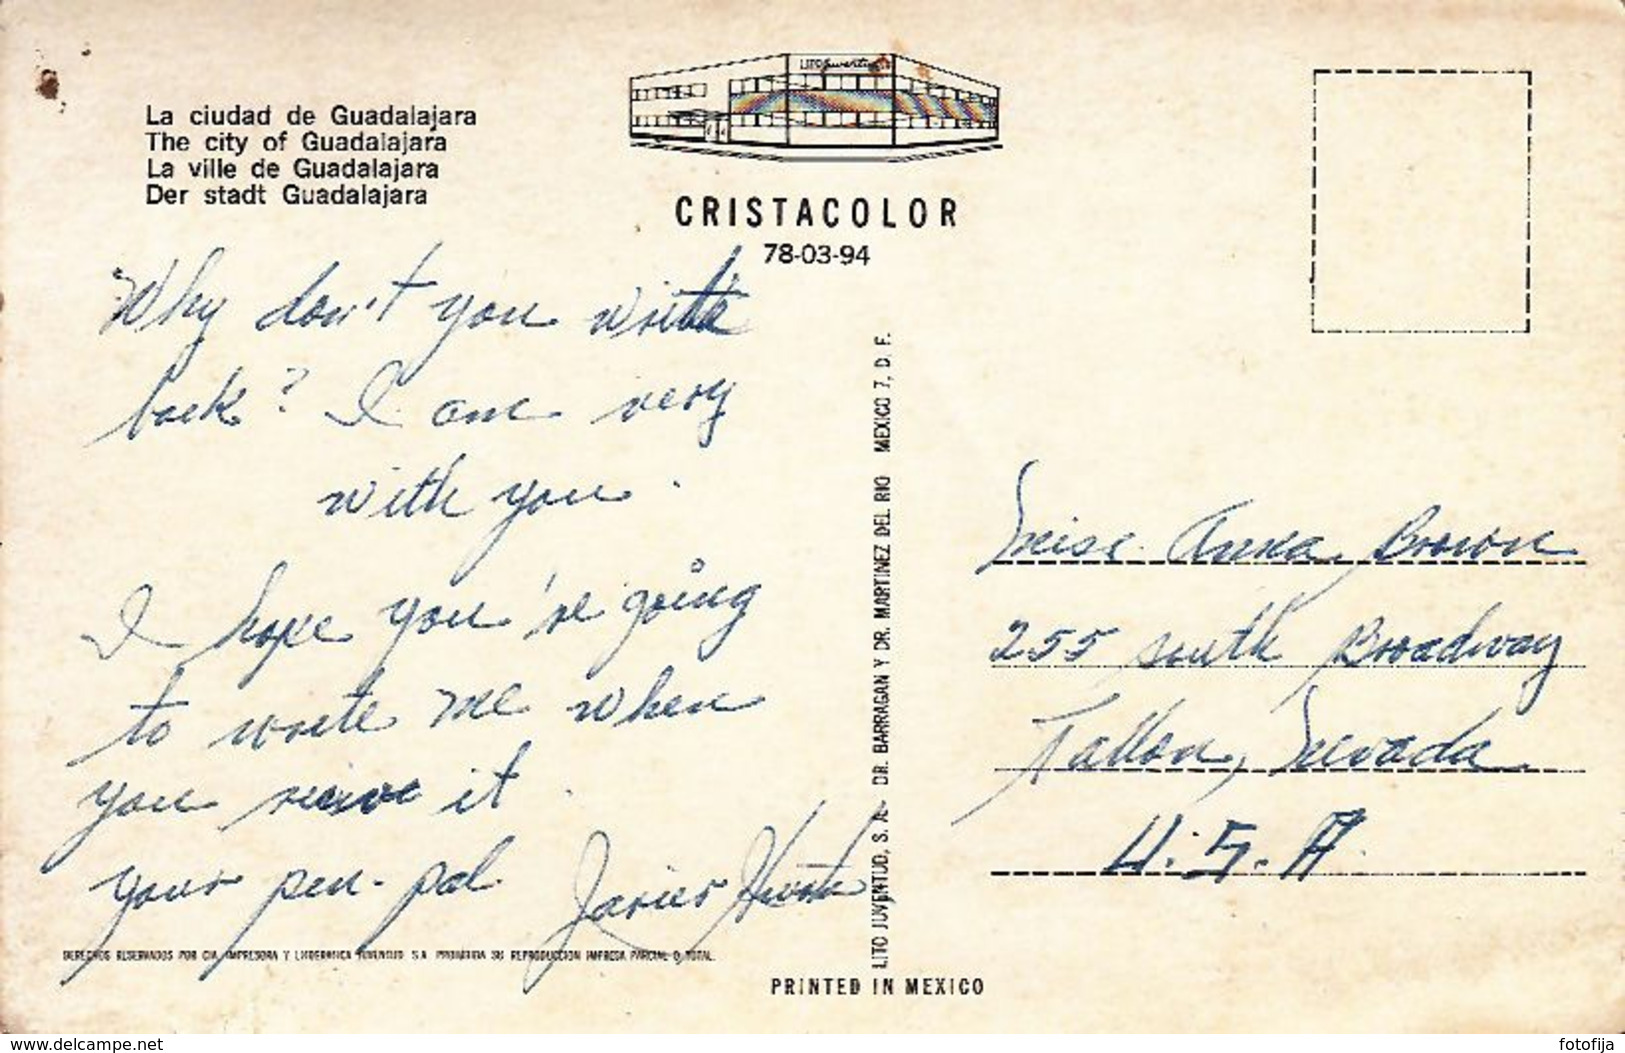 La ciudad de Guadalajara
The city of Guadalajara
La ville de Guadalajara
Der stadt Guadalajara
CRISTACOLOR
78-03-94
Why don't you write
back? I am very
with you.
I hope you're going
to write me when
you reeive it.
your pen-pal Javier
DERECHOS RESERVADOS POR CIA. IMPRESORA Y LITOGRAFICA JUVENTUD S.A. PROHIBIDA SU REPRODUCCION IMPRESA PARCIAL O TOTAL.
LITO JUVENTUD, S. A. DR. BARRAGAN Y DR. MARTINEZ DEL RIO MEXICO 7, D. F.
PRINTED IN MEXICO
Anna Brown
255 south Broadway
Fallon, Nevada
U.S.A.
www.delcampe.net
fotofija